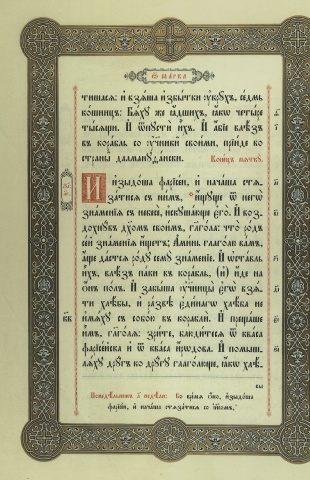 Ѿ МАРКА
тишасѧ: и҆ взѧ́ша и҆збы́тки ᲂу҆крꙋ́хъ, се́дмь
ко́шницъ: Бѧ́хꙋ же ꙗ҆́дшихъ, ꙗ҆́кѡ четы́ре
ты́сѧщи. И҆ ѿпꙋстѝ и҆̀хъ. И҆ а҆́бїе влѣ́зъ
въ кора́бль со ᲂу҆чн҃ки̑ свои́ми, прїи́де во
страны̑ далманꙋѳа̑нски. Коне́цъ пѧткꙋ̀.
И҆ и҆зыдо́ша фарїсе́и, и҆ нача́ша стѧ-
за́тисѧ съ ни́мъ, и҆́щꙋще ѿ негѡ̀
зна́менїѧ съ небесѐ, и҆скꙋша́юще є҆го̀. И҆ воз-
дохнꙋ́въ дх҃омъ свои́мъ, гл҃го́ла: что̀ ро́дъ
се́й зна́менїѧ и҆́щетъ; А҆ми́нь гл҃го́лю ва́мъ,
а҆́ще да́стсѧ ро́дꙋ семꙋ̀ зна́менїе. И҆ ѡ҆ста́вль
и҆́хъ, влѣ́зъ па́ки въ кора́бль, (и҆) и҆́де на
ѻ҆́нъ по́лъ. И҆ забы́ша ᲂу҆чн҃цы̀ є҆гѡ̀ взѧ́-
ти хлѣ́бы, и҆ ра́звѣ є҆ди́нагѡ хлѣ́ба не
и҆мѧ́хꙋ съ собо́ю въ кораблѝ. И҆ преща́ше
и҆̀мъ, гл҃го́лѧ: зри́те, блюди́тесѧ ѿ ква́са
фарїсе́йска и҆ ѿ ква́са и҆́рѡдова. И҆ помышл-
лѧ́хꙋ дрꙋ́гъ ко дрꙋ́гꙋ гл҃го́люще, ꙗ҆́кѡ хлѣ́-
бы
Понедѣ́льникъ л҃ недѣ́ли: Во вре́мѧ ѻ҆́но, и҆зыдо́ша
фарїсе́и, и҆ нача́ша стѧза́тисѧ со і҆и҃сомъ,